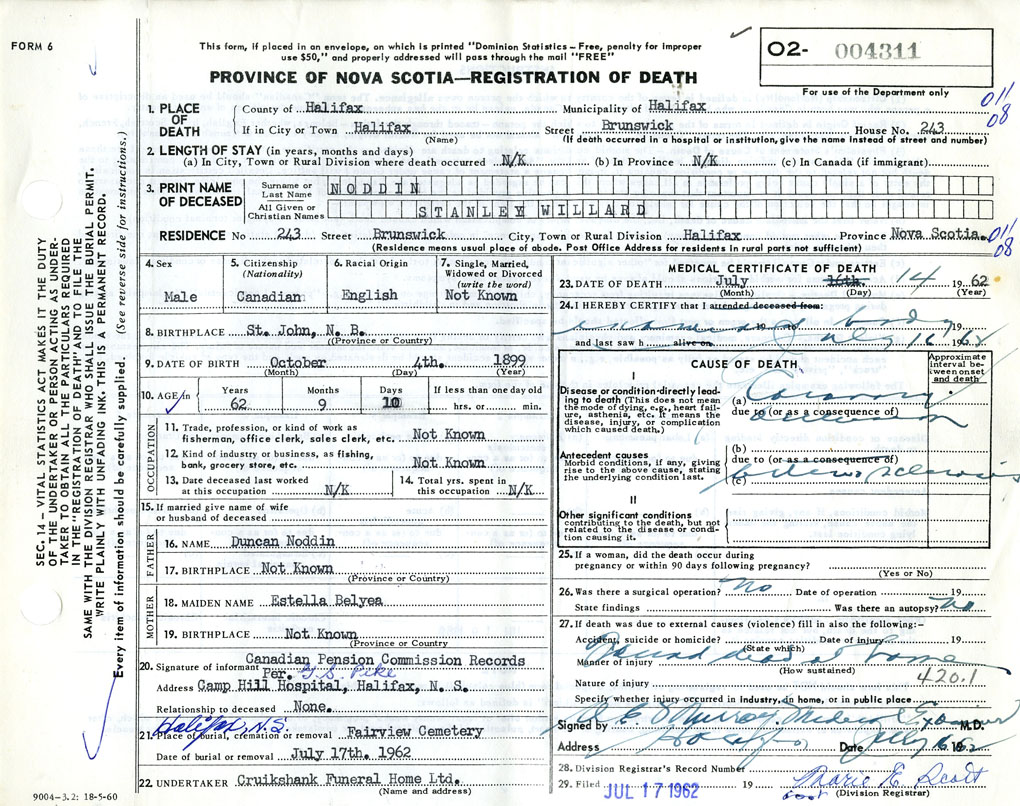 FORM 6
This form, if placed in an envelope, on which is printed "Dominion Statistics – Free, penalty for improper
use $50," and properly addressed will pass through the mail "FREE"
PROVINCE OF NOVA SCOTIA—REGISTRATION OF DEATH
O2- 004311
For use of the Department only
011
08
1. PLACE OF DEATH
County of Halifax Municipality of Halifax
If in City or Town Halifax Street Brunswick House No. 243
(Name) (If death occurred in a hospital or institution, give the name instead of street and number)
2. LENGTH OF STAY (in years, months and days)
(a) In City, Town or Rural Division where death occurred N/K (b) In Province N/K (c) In Canada (if immigrant)
3. PRINT NAME OF DECEASED
Surname or Last Name NODDIN
All Given or Christian Names STANLEY WILLARD
RESIDENCE No 243 Street Brunswick City, Town or Rural Division Halifax Province Nova Scotia. 011
08
(Residence means usual place of abode. Post Office Address for residents in rural parts not sufficient)
4. Sex
Male
5. Citizenship
(Nationality)
Canadian
6. Racial Origin
English
7. Single, Married,
Widowed or Divorced
(write the word)
Not Known
8. BIRTHPLACE St. John, N. B.
(Province or Country)
9. DATE OF BIRTH October 4th. 1899
(Month) (Day) (Year)
10. AGE in
Years Months Days If less than one day old
62 9 10 hrs. or min.
OCCUPATION
11. Trade, profession or kind of work as
fisherman, office clerk, sales clerk, etc. Not Known
12. Kind of industry or business, as fishing,
bank, grocery store, etc. Not Known
13. Date deceased last worked
at this occupation N/K
14. Total yrs. spent in
this occupation N/K
15. If married give name of wife
or husband of deceased
FATHER
16. NAME Duncan Noddin
17. BIRTHPLACE Not Known
(Province or Country)
MOTHER
18. MAIDEN NAME Estella Belyea
19. BIRTHPLACE Not Known
(Province or Country
20. Signature of informant Canadian Pension Commission Records
Per. G.S. Pike
Address Camp Hill Hospital, Halifax, N. S.
Relationship to deceased None.
Halifax, N.S.
21. Place of burial, cremation or removal Fairview Cemetery
Date of burial or removal July 17th. 1962
22. UNDERTAKER Cruikshank Funeral Home Ltd.
(Name and address)
MEDICAL CERTIFICATE OF DEATH
23. DATE OF DEATH July 16th. 14 1962
(Month) (Day) (Year)
24. I HEREBY CERTIFY that I attended deceased from:
19 to body 19
and last saw h alive on July 16 1962
CAUSE OF DEATH
Approximate
interval between
onset
and death
I
Disease or condition directly leading
to death (This does not mean
the mode of dying, e.g., heart failure,
asthenia, etc. It means the
disease, injury, or complication
which caused death.)
(a) Coronary
due to (or as a consequence of)
Antecedent causes
Morbid conditions, if any, giving
rise to the above cause, stating
the underlying condition last.
(b)
due to (or as a consequence of)
(c)
II
Other significant conditions
contributing to the death, but not
related to the disease or condition
causing it.
25. If a woman, did the death occur during
pregnancy or within 90 days following pregnancy?
(Yes or No)
26. Was there a surgical operation? No Date of operation 19
State findings Was there an autopsy? No
27. If death was due to external causes (violence) fill in also the following:–
Accident, suicide or homicide? Date of injury 19
(State which)
Found dead at home
Manner of injury
(How sustained)
Nature of injury 420.1
Specify whether injury occurred in industry, in home, or in public place
Signed by Murray Medical Examiner M.D.
Address Halifax Date July 16 1962
28. Division Registrar's Record Number
29. Filed JUL 17 1962 19 Marie E. Scott
(Division Registrar)
SEC. 14 – VITAL STATISTICS ACT MAKES IT THE DUTY
OF THE UNDERTAKER OR PERSON ACTING AS UNDERTAKER
TO OBTAIN ALL THE PARTICULARS REQUIRED
IN THE "REGISTRATION OF DEATH" AND TO FILE THE
SAME WITH THE DIVISION REGISTRAR WHO SHALL ISSUE THE BURIAL PERMIT.
WRITE PLAINLY WITH UNFADING INK. THIS IS A PERMANENT RECORD.
Every item of information should be carefully supplied. (See reverse side for instructions.)
9004-3.2: 18-5-60